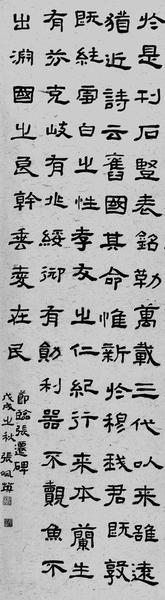 於是刊石竪表銘勒萬載三代以來雖遠
猶近詩云舊國其命惟新於穆我君既敦
既純雪白之性孝友之仁紀行來本蘭生
有芬克岐有兆綏御有勛利器不覿魚不
出淵國之良幹垂愛在民
節臨張遷碑
戊戌之秋張